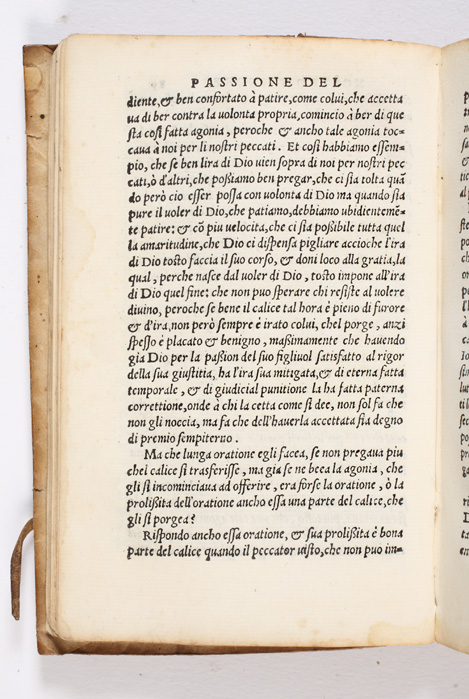 PASSIONE DEL
diente, & ben confortato à patire, come colui, che accetta
va di ber contra la uolonta propria, comincio à ber di que
sta così fatta agonia, peroche & ancho tale agonia toc=
caua à noi per li nostri peccati. Et così habbiamo essem=
pio, che se ben lira di Dio uien sopra di noi per nostri pec
cati, ò d'altri, che poßiamo ben pregar, che ci sia tolta quã
do però cio esser possa con uolonta di Dio ma quando sia
pure il uoler di Dio, che patiamo, debbiamo ubidientemẽ=
te patire: & cõ piu uelocita, che ci sia poßibile tutta quel
la amaritudine, che Dio ci dispensa pigliare accioche l'ira
di Dio tosto faccia il suo corso, & doni loco alla gratia, la
qual, perche nasce dal uoler di Dio, tosto impone all'ira
di Dio quel fine: che non può sperare chi resiste al uolere
diuino, peroche se bene il calice tal hora è pieno di furore
& d'ira, non però sempre è irato colui, chel porge, anzi
spesso è placato & benigno, maßimamente che hauendo
gia Dio per la paßion del suo figliuol satisfatto al rigor
della sua giustitia, ha l'ira sua mitigata, & di eterna fatta
temporale, & di giudicial punitione la ha fatta paterna
correttione, onde à chi la cetta come si dee, non sol fa che
non gli noccia, ma fa che dell'hauerla accettata sia degno
di premio sempiterno.
Ma che lunga oratione egli facea, se non pregaua piu
chel calice si trasferisse, ma gia se ne beea la agonia, che
gli si incominciaua ad offerire, era forse la oratione, ò la
prolißita dell'oratione ancho essa una parte del calice, che
gli si porgea?
Rispondo ancho essa oratione, & sua prolißita è bona
parte del calice quando il peccator uisto, che non puo im=